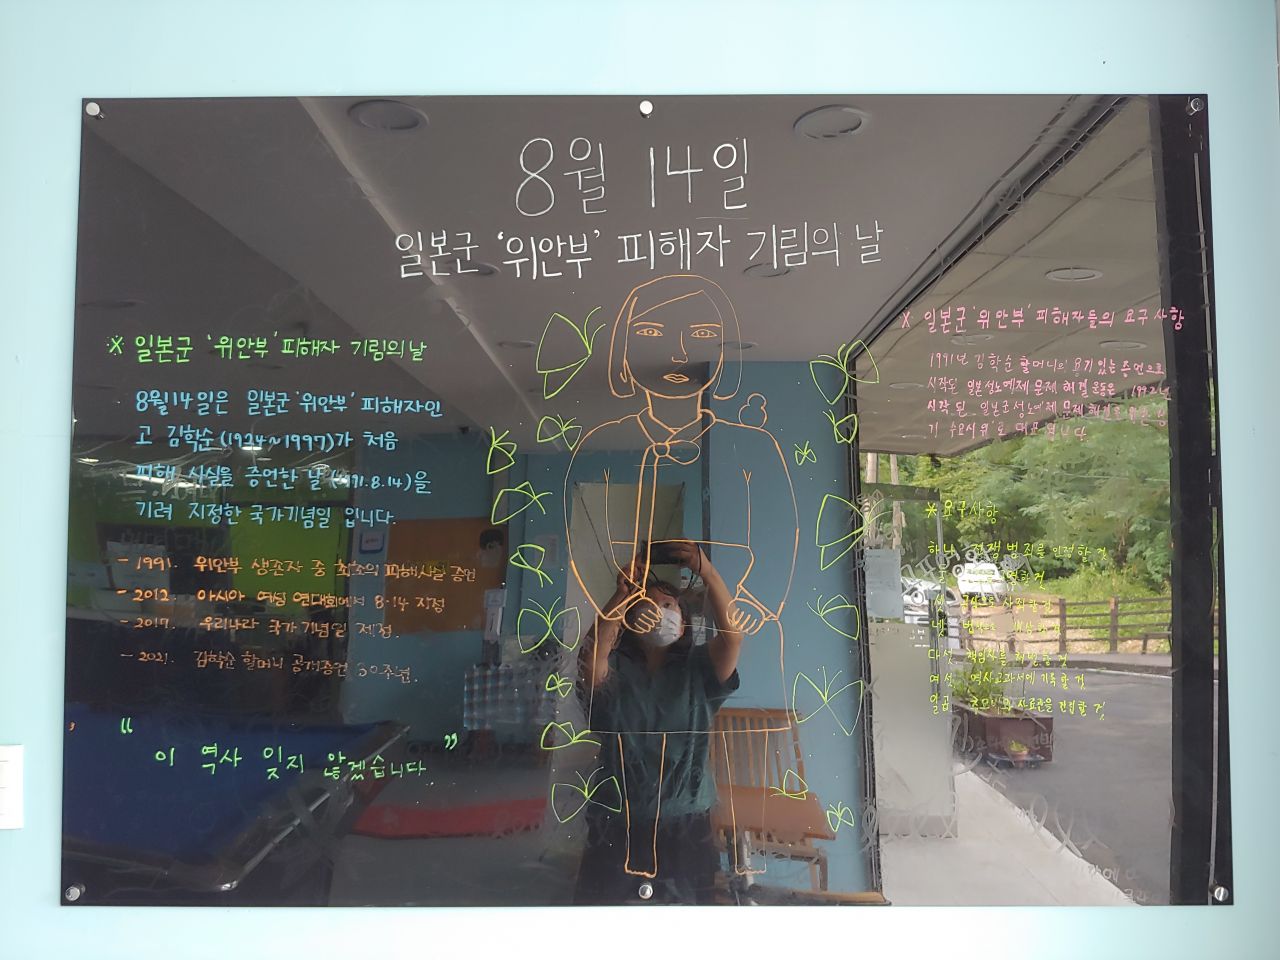 8월 14일
일본군 '위안부' 피해자 기림의 날
※ 일본군 '위안부' 피해자 기림의 날
8월 14일은 일본군 '위안부' 피해자인
고 김학순(1924~1997)가 처음
피해 사실을 증언한 날(1991.8.14)을
기려 지정한 국가기념일 입니다.
- 1991. 위안부 생존자 중 최초의 피해사실 증언
- 2012. 아시아 여성 연대회에서 8·14 지정
- 2017. 우리나라 국가기념일 제정.
- 2021. 김학순 할머니 공개증언 30주년.
" 이 역사 잊지 않겠습니다. "
※ 일본군 '위안부' 피해자들의 요구사항
1991년 김학순 할머니의 용기있는 증언으로
시작된 일본군성노예제 문제 해결 운동은 1992년
시작된 일본군성노예제 문제 해결을 위한
기 수요시위로
※ 요구사항
하나 전쟁범죄를 인정할 것
할 것
공식으로 사죄할 것
넷
다섯 책임자를 처벌할 것
여섯 역사교과서에 기록할 것
일곱 추모비와 사료관을 건립할 것